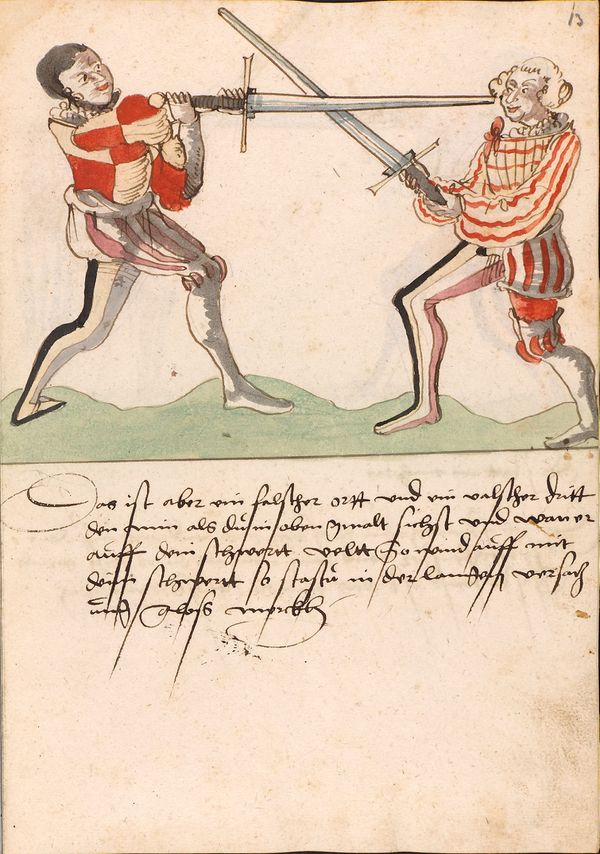 13
Das ist aber ein falscher ortt und ein valscher dritt
den nim als du in oben gmalt sichst und wan er
auff dem schwertt velt So wind auff mit
deim schwertt so stastu in der langen versach
und gloss merckh